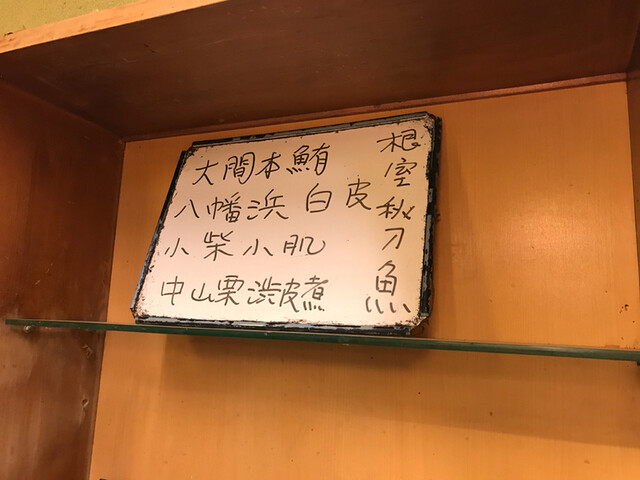 大間本鮪
八幡浜白皮
小柴小肌
中山栗渋皮煮
根室秋刀魚